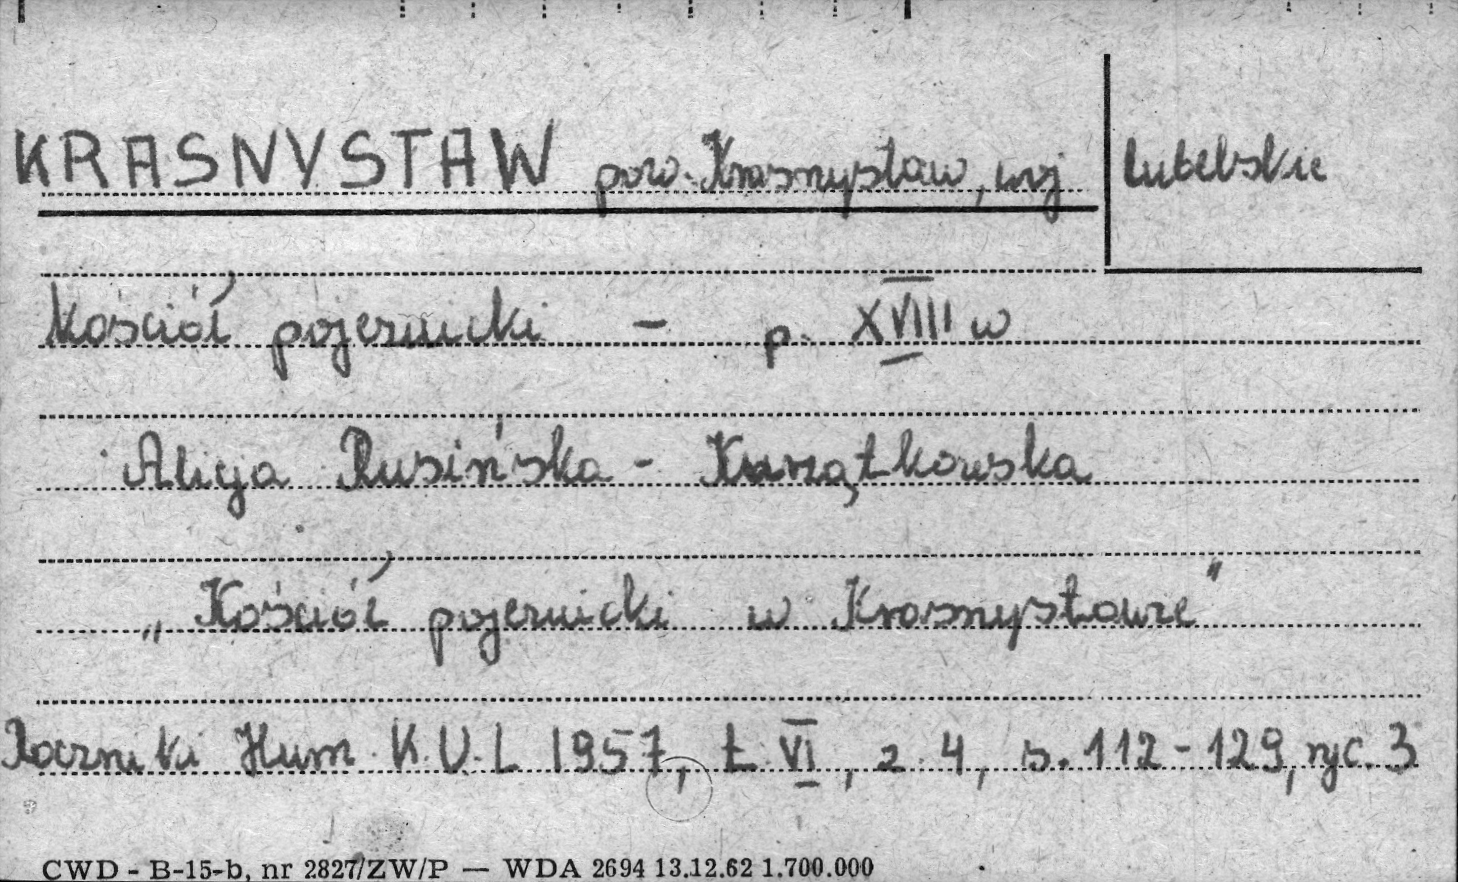 KRASNYSTAW pow. Krasnystaw, woj lubelskie
Kościół pojezuicki - p. XVIII w
Alicja Rusińska - Kurzątkowska
„Kościół pojezuicki w Krasnystawie"
Roczniki Hum. K.U.L 1957, t. VI, z. 4, s. 112-129, ryc. 3
CWD - B-15-b, nr 2827/ZW/P — WDA 2694 13.12.62 1.700.000